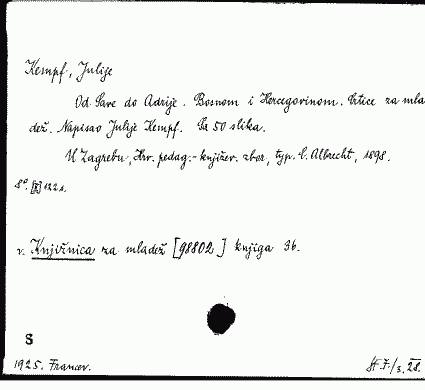 Kempf, Julije
Od Save do Adrije. Bosnom i Hercegovinom. Crtice za mla
dež. Napisao Julije Kempf. Sa 50 slika.
U Zagrebu, Hrv. pedag.-književ. zbor, typ. C. Albrecht, 1898.
8°. 122 s.
v. Knjižnica za mladež [98802] knjiga 36.
S
1925. Francev.